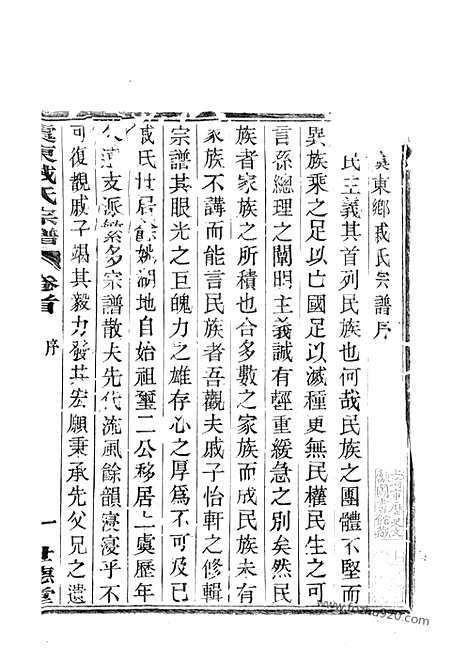 虞東鄉戚氏宗譜序
民主義其首列民族也何哉民族之團體不堅而
異族乘之足以亡國足以滅種更無民權民生之可
言孫總理之闡明主義誠有輕重緩急之別矣然民
族者家族之所積也合多數之家族而成民族未有
家族不講而能言民族者吾觀夫戚子怡軒之修輯
宗譜其眼光之巨魄力之雄存心之厚爲不可及已
戚氏世居餘姚湖地自始祖璽二公移居上虞歷年
久遠支派繁多宗譜散失先代流風餘韻寖寖乎不
可復覩戚子竭其毅力發其宏願秉承先父兄之遺
虞東戚氏宗譜 卷首 序 一 世德堂
www.fozhu920.com